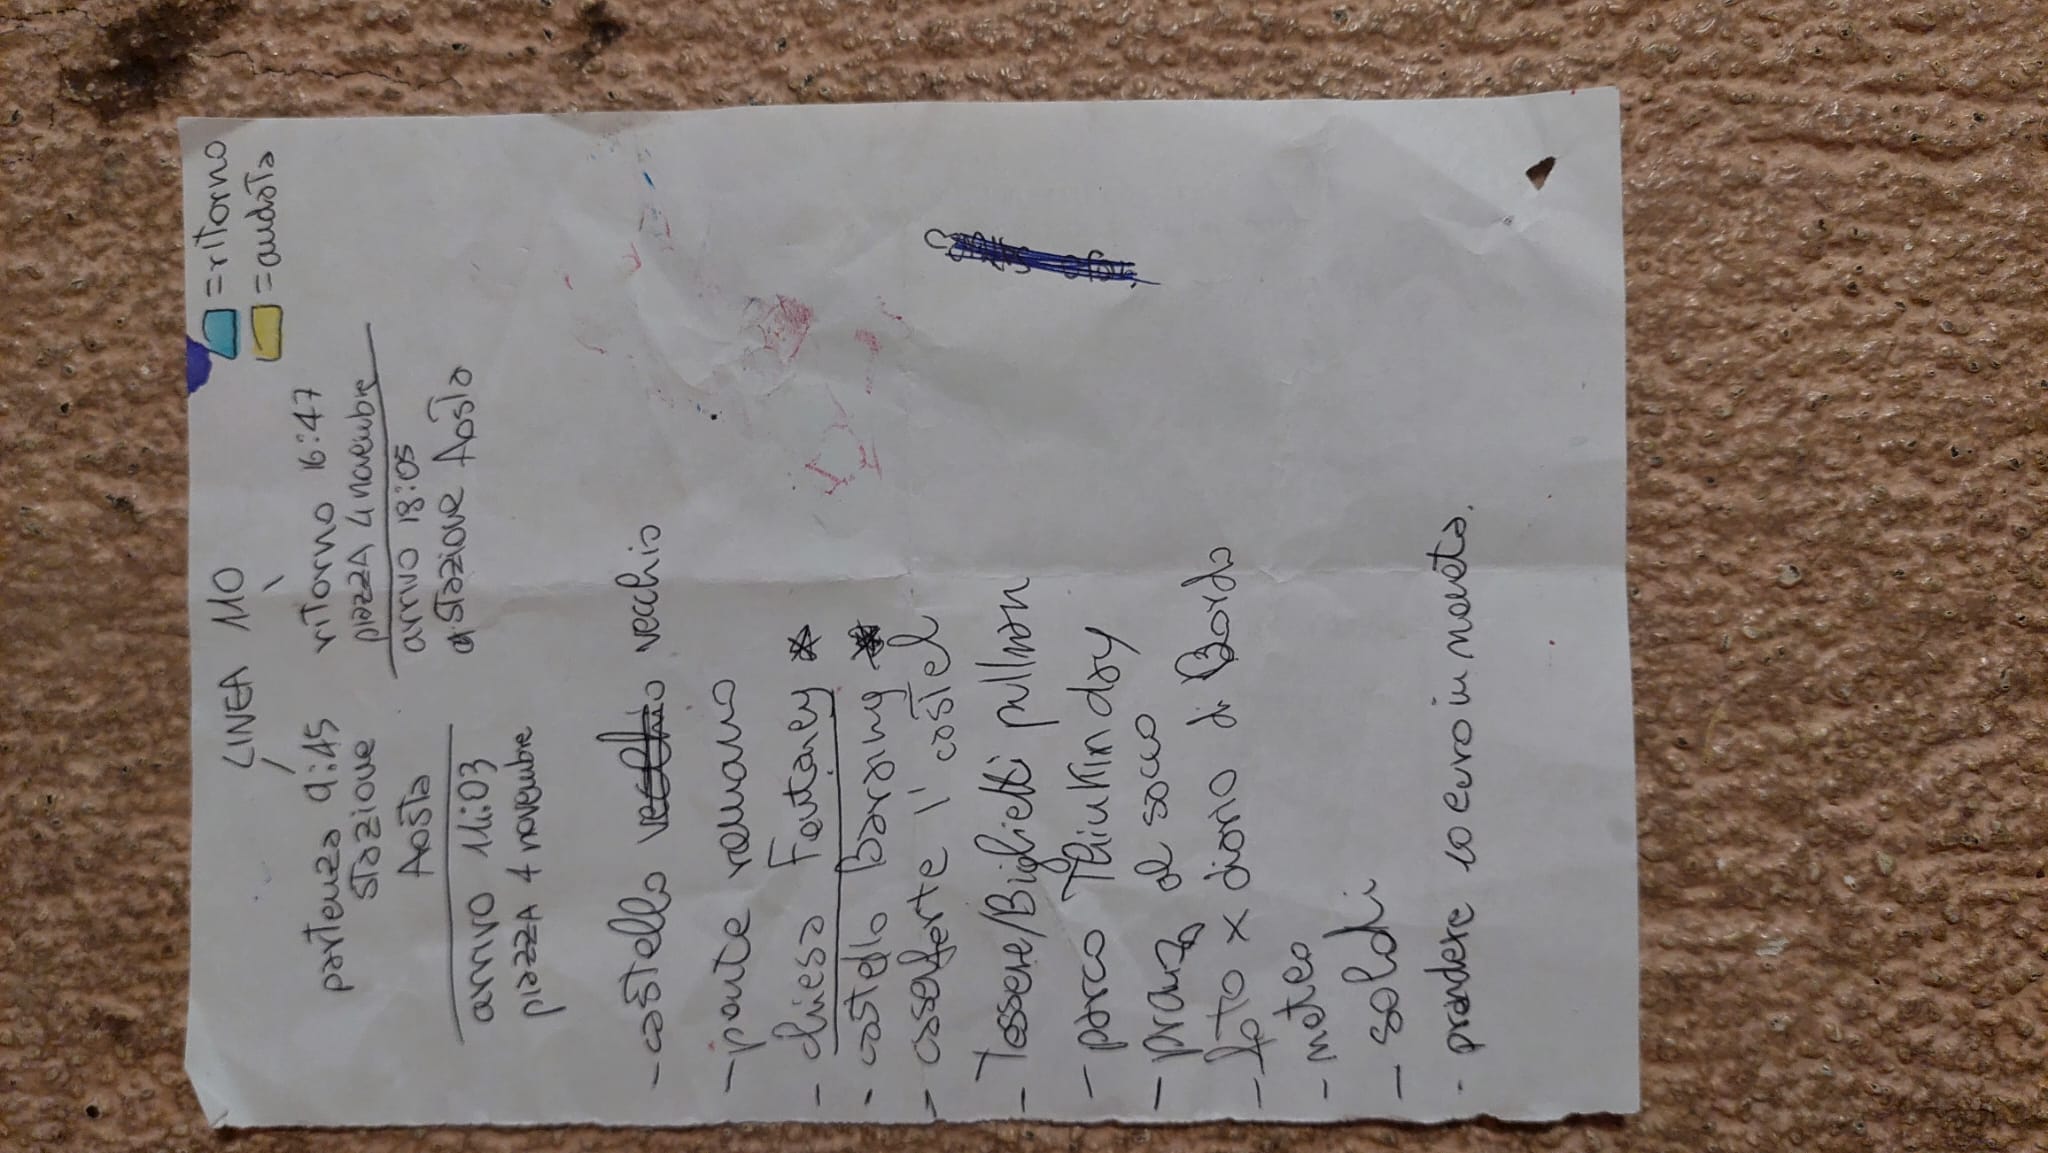 = ritorno
= andata
LINEA 110
partenza 9:45
stazione
Aosta
arrivo 11:03
piazza 4 novembre
ritorno 16:47
piazza 4 novembre
arrivo 18:05
stazione Aosta
- castello vecchio
- ponte romano
- chiesa Fontaney
- castello Baraing
- caseforte l' castel
- Tessere/Biglietti pullman
- parco
- pranzo al sacco
- foto x diario di Bordo
- meteo
- soldi
- prendere 10 euro in moneta.